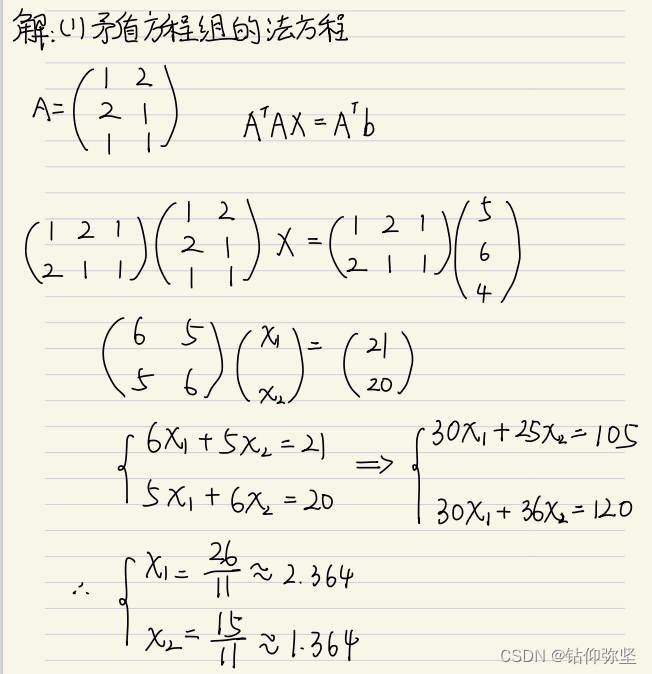 解:(1)矛盾方程组的法方程
A=(1 2
2 1
1 1) AᵀAX=Aᵀb
(1 2 1
2 1 1)(1 2
2 1
1 1) X =(1 2 1
2 1 1)(5
6
4)
(6 5
5 6)(x₁
x₂)=(21
20)
{6x₁+5x₂=21 ⟹ {30x₁+25x₂=105
5x₁+6x₂=20 30x₁+36x₂=120
∴ {x₁=26/11≈2.364
x₂=15/11≈1.364
CSDN @钻仰弥坚